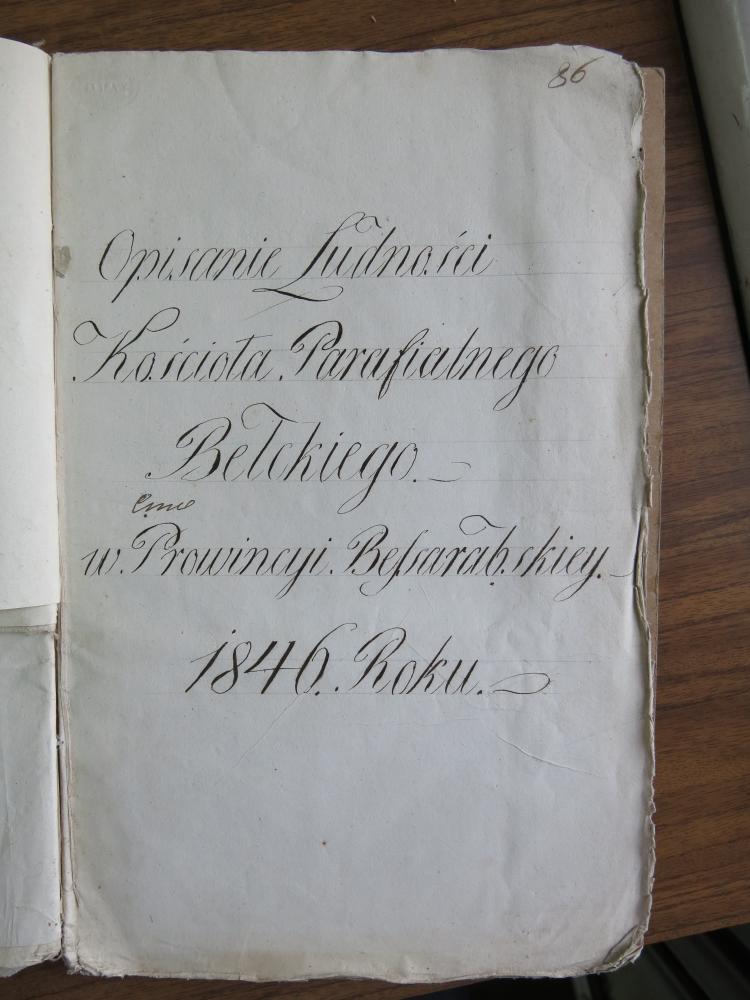 86
Opisanie Ludności
Kościoła Parafialnego
Bełckiego.
w Prowincyi Bessarabskiey.
1846 Roku.